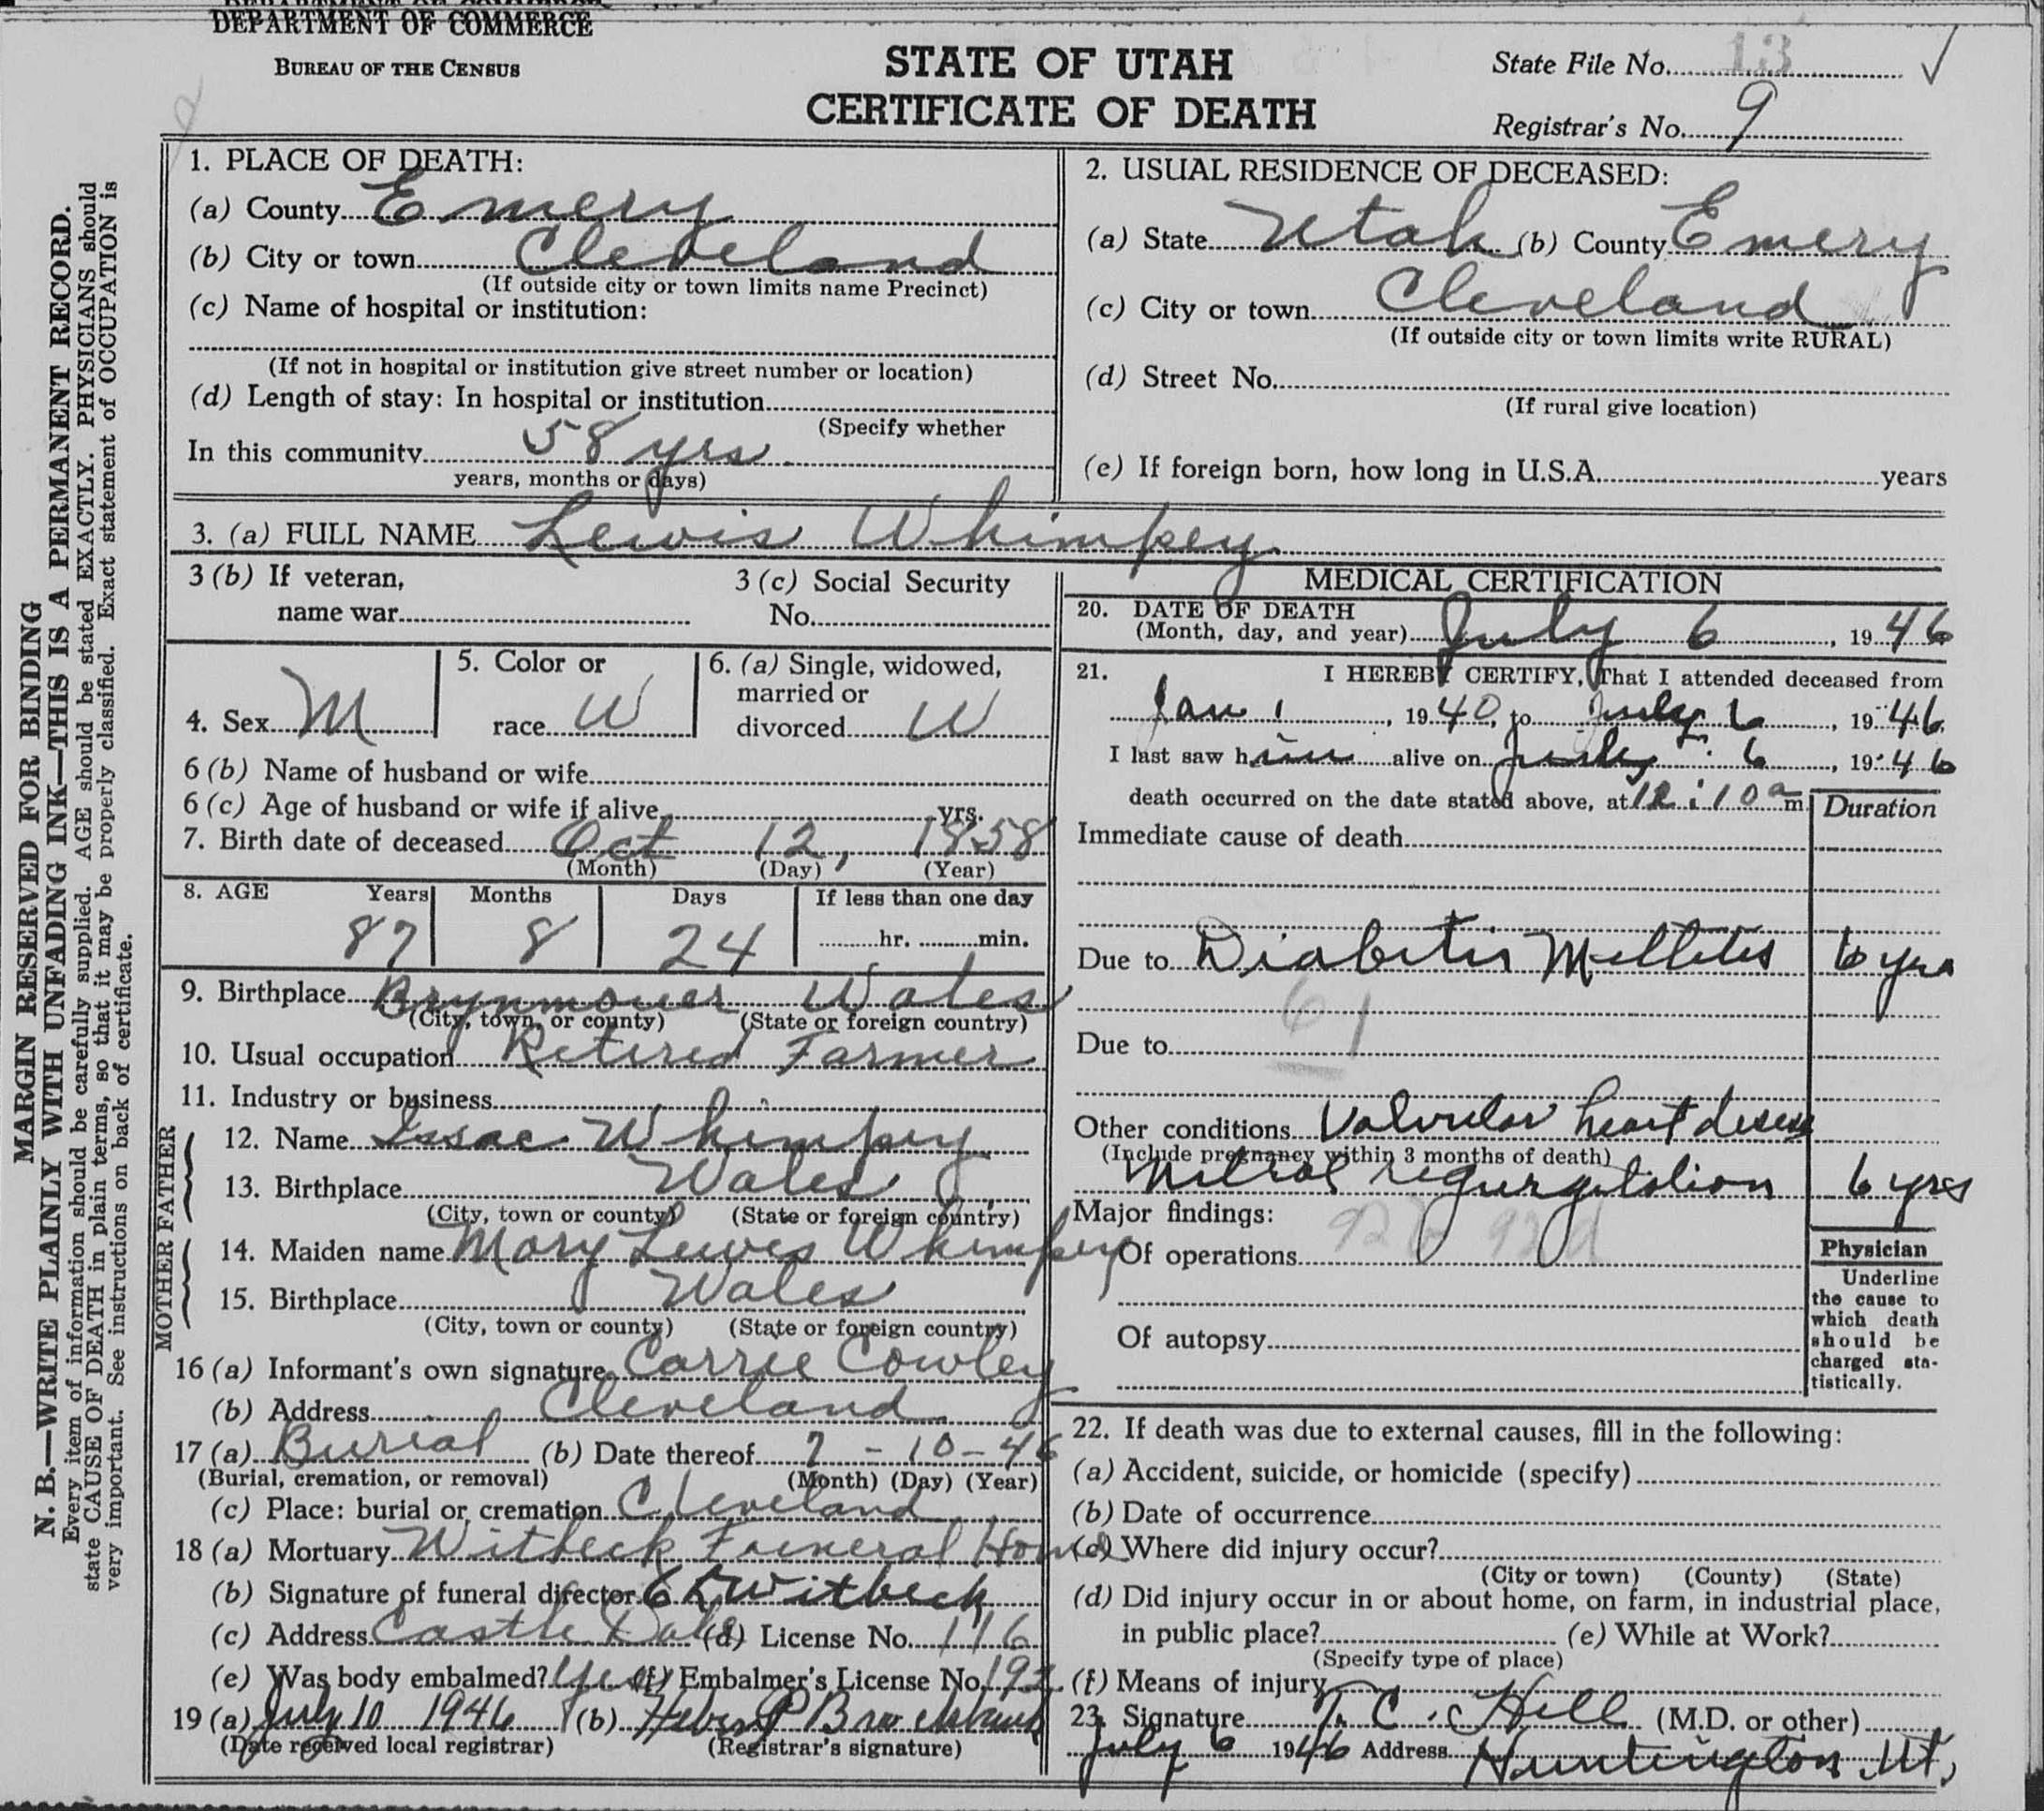 DEPARTMENT OF COMMERCE
BUREAU OF THE CENSUS
STATE OF UTAH
CERTIFICATE OF DEATH
State File No. 13
Registrar's No. 9
MARGIN RESERVED FOR BINDING
N. B.—WRITE PLAINLY WITH UNFADING INK—THIS IS A PERMANENT RECORD.
Every item of information should be carefully supplied. AGE should be stated EXACTLY. PHYSICIANS should
state CAUSE OF DEATH in plain terms, so that it may be properly classified. Exact statement of OCCUPATION is
very important. See instructions on back of certificate.
1. PLACE OF DEATH:
(a) County Emery
(b) City or town Cleveland
(If outside city or town limits name Precinct)
(c) Name of hospital or institution:
(If not in hospital or institution give street number or location)
(d) Length of stay: In hospital or institution
(Specify whether
In this community 58 yrs
years, months or days)
2. USUAL RESIDENCE OF DECEASED:
(a) State Utah (b) County Emery
(c) City or town Cleveland
(If outside city or town limits write RURAL)
(d) Street No.
(If rural give location)
(e) If foreign born, how long in U.S.A. years
3. (a) FULL NAME Lewis Whimpey
3 (b) If veteran,
name war
3 (c) Social Security
No.
4. Sex M
5. Color or
race W
6. (a) Single, widowed,
married or
divorced W
6 (b) Name of husband or wife
6 (c) Age of husband or wife if alive yrs.
7. Birth date of deceased Oct 12, 1858
(Month) (Day) (Year)
8. AGE Years Months Days If less than one day
87 8 24 hr. min.
9. Birthplace Brynmouer Wales
(City, town, or county) (State or foreign country)
10. Usual occupation Retired Farmer
11. Industry or business
FATHER
12. Name Issac Whimpey
13. Birthplace Wales
(City, town or county) (State or foreign country)
MOTHER
14. Maiden name Mary Lewes Whimpey
15. Birthplace Wales
(City, town or county) (State or foreign country)
16 (a) Informant's own signature Carrie Cowley
(b) Address Cleveland
17 (a) Burial (b) Date thereof 7-10-46
(Burial, cremation, or removal) (Month) (Day) (Year)
(c) Place: burial or cremation Cleveland
18 (a) Mortuary Witbeck Funeral Home
(b) Signature of funeral director Witbeck
(c) Address Castle Dale (d) License No. 116
(e) Was body embalmed? Yes (f) Embalmer's License No. 192
19 (a) July 10 1946 (b) Heber P
(Date received local registrar) (Registrar's signature)
MEDICAL CERTIFICATION
20. DATE OF DEATH
(Month, day, and year) July 6, 1946
21. I HEREBY CERTIFY, That I attended deceased from
Jan 1, 1940, to July 6, 1946
I last saw him alive on July 6, 1946
death occurred on the date stated above, at 12:10 a m. Duration
Immediate cause of death
Due to Diabetis Mellites 6 yrs
61
Due to
Other conditions Valvular heart disease
(Include pregnancy within 3 months of death)
Mitral regurgitation 6 yrs
Major findings: 92b 92d
Of operations
Of autopsy
Physician
Underline
the cause to
which death
should be
charged sta-
tistically.
22. If death was due to external causes, fill in the following:
(a) Accident, suicide, or homicide (specify)
(b) Date of occurrence
(c) Where did injury occur?
(City or town) (County) (State)
(d) Did injury occur in or about home, on farm, in industrial place,
in public place? (e) While at Work?
(Specify type of place)
(f) Means of injury
23. Signature T. C. Hill (M.D. or other)
July 6 1946 Address Huntington Ut.